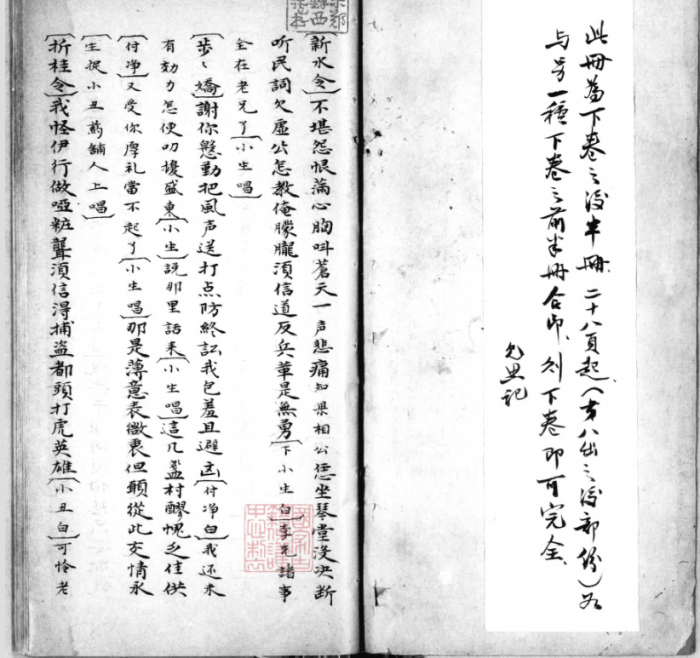 此册为下卷之後半册、二十八頁起、(第八出之後部份)若
与另一種下卷之前半册合印、则下卷即可完全、
允思记
〔新水令〕不堪怨恨滿心胸呌蒼天一声悲痛知県相公恁坐琴堂没决断
听民詞欠虛公怎教俺朦朧須信道反兵革是無勇〔下小生白〕李兄諸事
全在老兄了〔小生唱〕
〔步〻嬌〕謝你慇勤把風声送打点防終訟我包羞且避凶〔付净白〕我还未
有効力怎便叨擾盛東〔小生〕説那里話来〔小生唱〕這几盞村醪愧乏佳供
〔付净〕又受你厚礼當不起了〔小生唱〕那是薄意表微衷但願從此交情永
〔生捉小丑葯舖人上唱〕
〔折桂令〕我怪伊行做啞粧聾須信得捕盗都頭打虎英雄〔小丑白〕可怜老